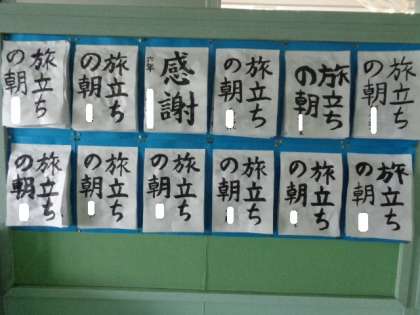 旅立ち
の朝
旅立ち
の朝
感謝
六年
旅立ち
の朝
旅立ち
の朝
旅立ち
の朝
旅立ち
の朝
旅立ち
の朝
旅立ち
の朝
旅立ち
の朝
旅立ち
の朝
旅立ち
の朝